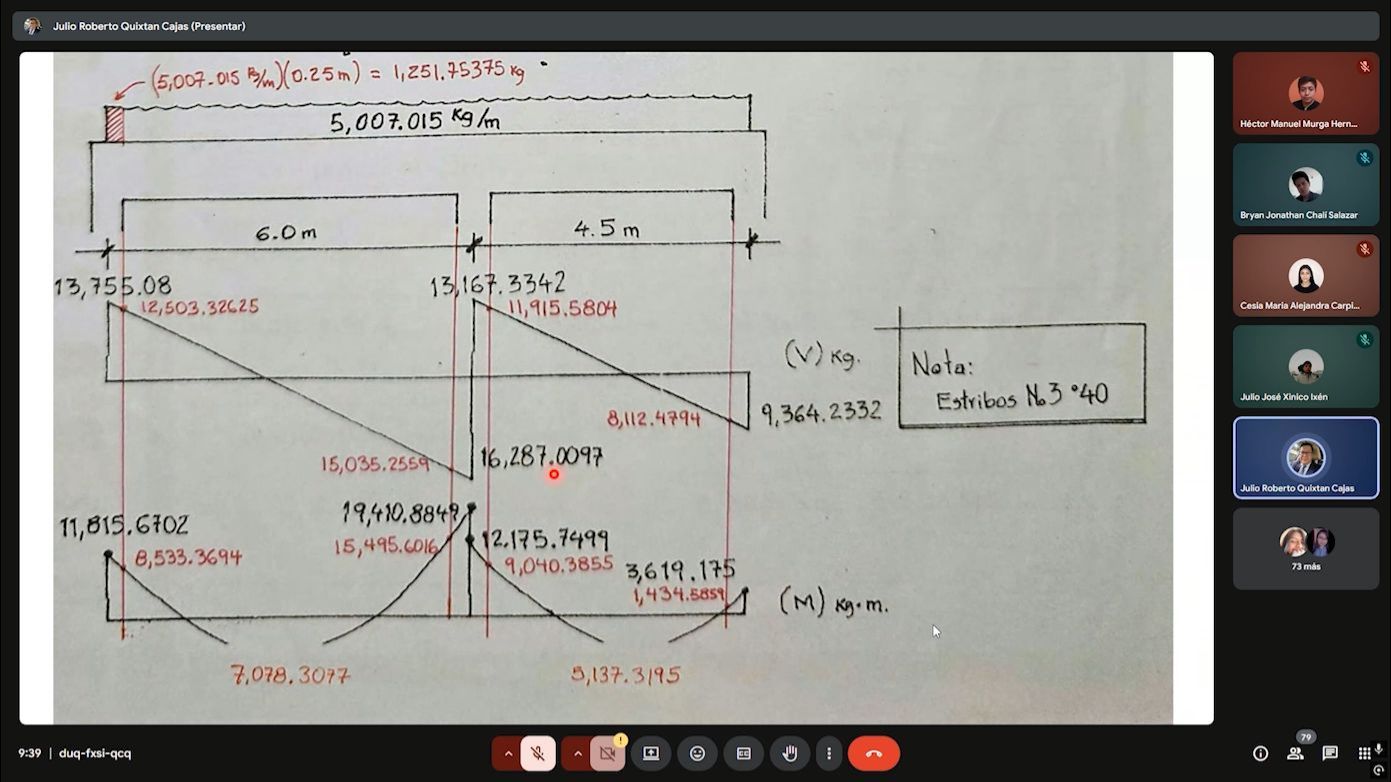 Julio Roberto Quixtan Cajas (Presentar)
(5,007.015 kg/m)(0.25m) = 1,251.75375 kg
5,007.015 Kg/m
6.0 m
4.5 m
13,755.08
13,167.3342
12,503.32625
11,915.5804
(V) Kg.
Nota:
Estribos No.3 °40
8,112.4794
9,364.2332
15,035.2559
16,287.0097
19,410.8849
11,815.6702
12.175.7499
15,495.6016
8,533.3694
9,040.3855
3,619.175
1,434.5859
(M) Kg·m.
7,078.3077
5,137.3195
Héctor Manuel Murga Hern...
Bryan Jonathan Chalí Salazar
Cesia Maria Alejandra Carpi...
Julio José Xinico Ixén
Julio Roberto Quixtan Cajas
73 más
9:39 | duq-fxsi-qcq
79